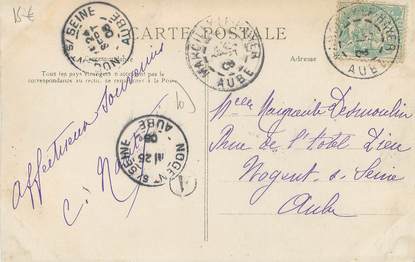 15€
CARTE POSTALE
Correspondance
Adresse
Tous les pays étrangers n'acceptent pas la
correspondance au recto, se renseigner à la Poste
Affectueux Souvenirs
C.
Mlle Marguerite Desmoulin
Rue de l'Hôtel Dieu
Nogent s. Seine
Aube
NOGENT S/ SEINE
AUBE
AUBE
NOGENT S/ SEINE
AUBE
AUBE